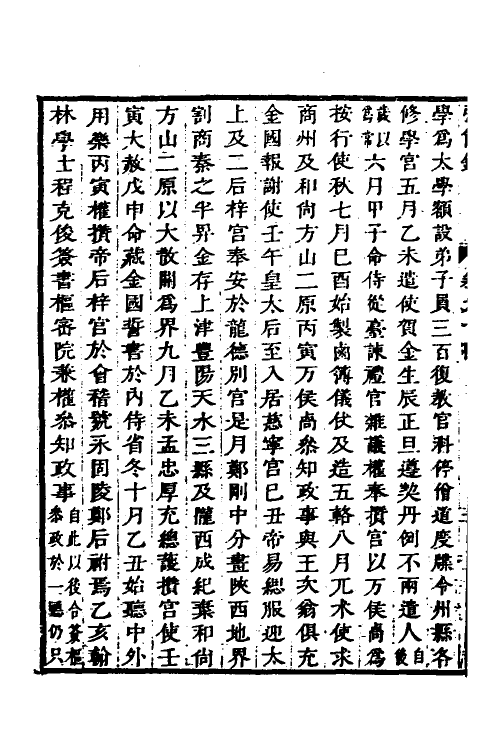 學為太學額設弟子員三百復教官科停僧道度牒令州縣各
修學宮五月乙未遣使賀金生辰正旦遵契丹例不兩遣人自後
歲以為常六月甲子命侍從臺諫禮官雜議權奉攢宮以万俟卨為
按行使秋七月巳酉始製鹵簿儀仗及造五輅八月兀术使求
商州及和尚方山二原丙寅万俟卨叅知政事與王次翁俱充
金國報謝使壬午皇太后至入居慈寧宮巳丑帝易緦服迎太
上及二后梓宮奉安於龍德別宮是月鄭剛中分畫陝西地界
割商秦之半畀金存上津豐陽天水三縣及隴西成紀棄和尚
方山二原以大散關為界九月乙未孟忠厚充總護攢宮使壬
寅大赦戊申命藏金國誓書於內侍省冬十月乙丑始聽中外
用樂丙寅權攢帝后梓宮於會稽號永固陵鄭后祔焉乙亥翰
林學士程克俊簽書樞密院兼權叅知政事自此以後合簽樞叅政於一聽仍只